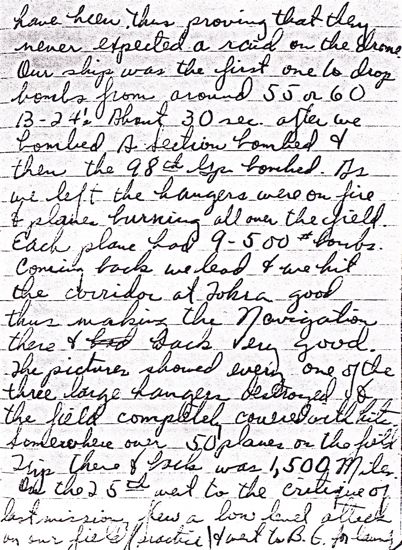 have been. Thus proving that they
never expected a raid on the drome.
Our ship was the first one to drop
bombs from around 55 or 60
B-24's. About 30 sec. after we
bombed A Section bombed &
then the 98th Grp. bombed. As
we left the hangers were on fire
& planes burning all over the field.
Each plane had 9-500# bombs.
Coming back we lead & we hit
the corridor at Tokra good
thus making the Navigation
there & back very good.
The pictures showed every one of the
three large hangers destroyed &
the field completely covered with hits.
Somewhere over 50 planes on the field
Trip there & back was 1,500 Miles.
On the 25th went to the critique of
last mission, flew a low level attack
on our field (practice) & went to B. G. for